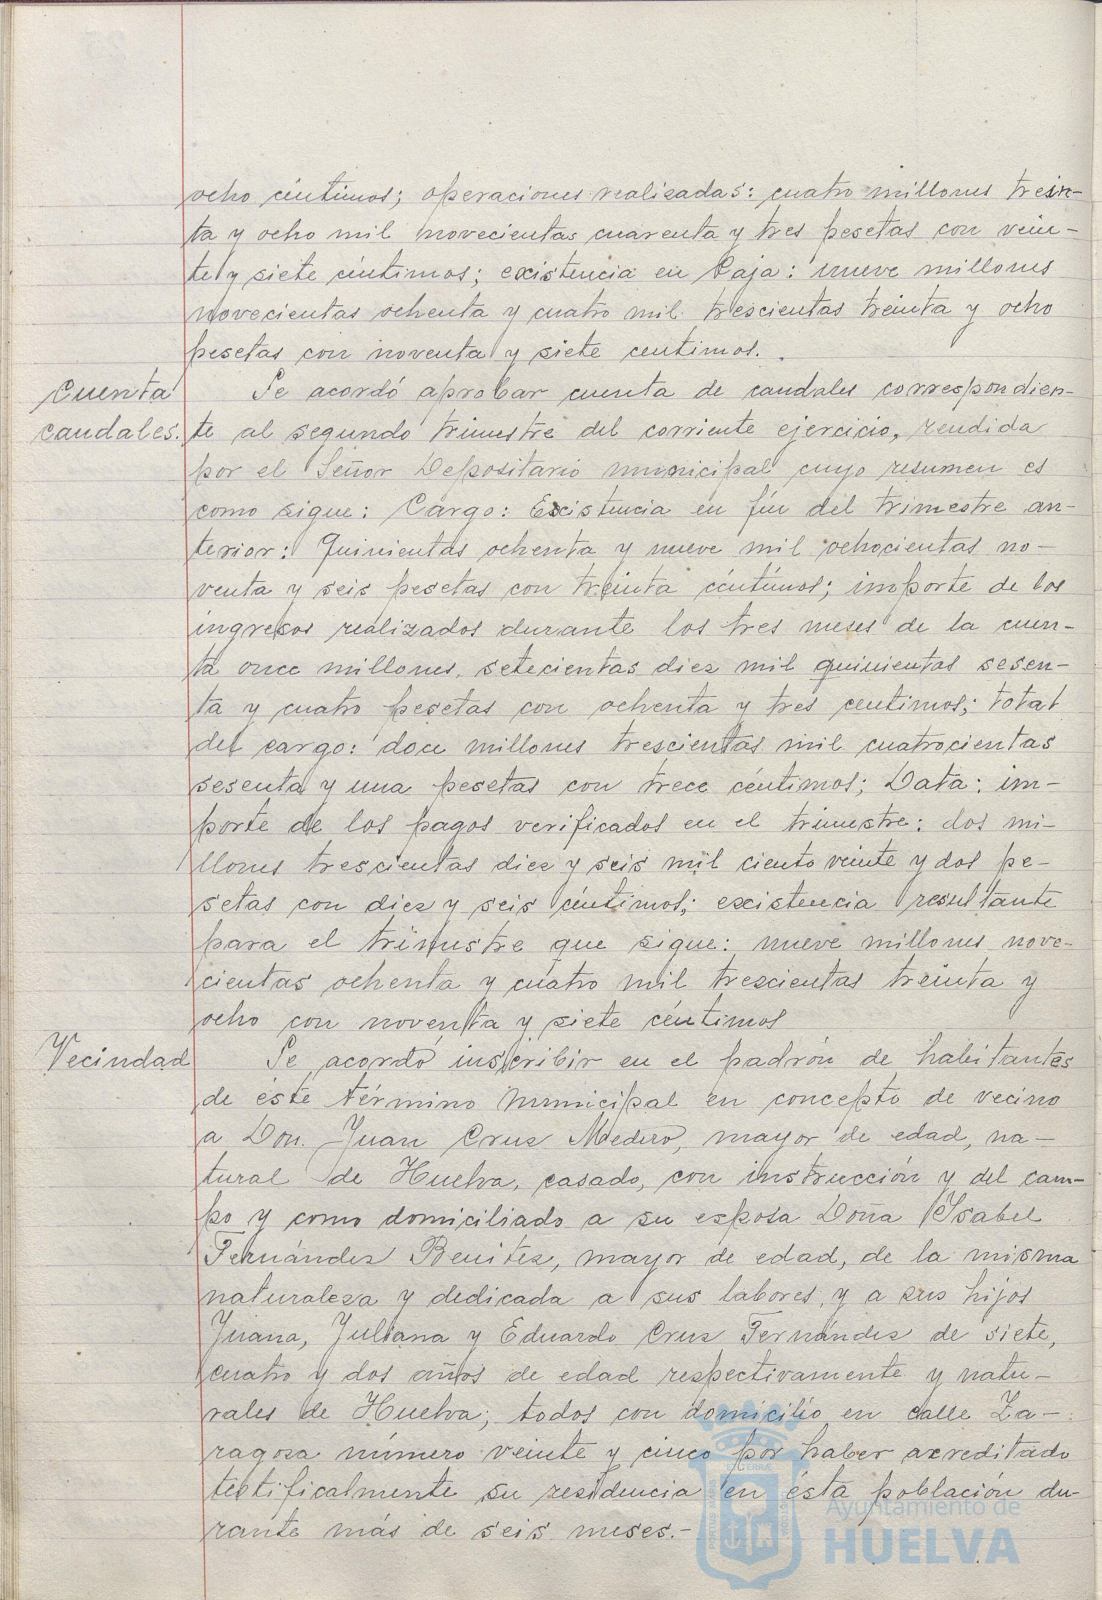 ocho céntimos; operaciones realizadas: cuatro millones trein-
ta y ocho mil novecientas cuarenta y tres pesetas con vein-
te y siete céntimos; existencia en Caja: nueve millones
novecientas ochenta y cuatro mil trescientas treinta y ocho
pesetas con noventa y siete centimos.
Cuenta
caudales.
Se acordó aprobar cuenta de caudales correspondien-
te al segundo trimestre del corriente ejercicio, rendida
por el Señor Depositario municipal cuyo resumen es
como sigue: Cargo: Existencia en fín del trimestre an-
terior: Quinientas ochenta y nueve mil ochocientas no-
venta y seis pesetas con treinta céntimos; importe de los
ingresos realizados durante los tres meses de la cuen-
ta once millones, setecientas diez mil quinientas sesen-
ta y cuatro pesetas con ochenta y tres centimos; total
del cargo: doce millones trescientas mil cuatrocientas
sesenta y una pesetas con trece céntimos; Data: im-
porte de los pagos verificados en el trimestre: dos mi-
llones trescientas diez y seis mil ciento veinte y dos pe-
setas con diez y seis céntimos; existencia resultante
para el trimestre que sigue: nueve millones nove-
cientas ochenta y cuatro mil trescientas treinta y
ocho con noventa y siete céntimos
Vecindad
Se acordó inscribir en el padrón de habitantes
de éste término municipal en concepto de vecino
a Don Juan Cruz Medero, mayor de edad, na-
tural de Huelva, casado, con instrucción y del cam-
po y como domiciliado a su esposa Doña Isabel
Fernández Benitez, mayor de edad, de la misma
naturaleza y dedicada a sus labores, y a sus hijos
Juana, Juliana y Eduardo Cruz Fernández de siete,
cuatro y dos años de edad respectivamente y natu-
rales de Huelva; todos con domicilio en calle Za-
ragoza número veinte y cinco por haber acreditado
testificalmente su residencia en ésta población du-
rante más de seis meses.-
Ayuntamiento de
HUELVA